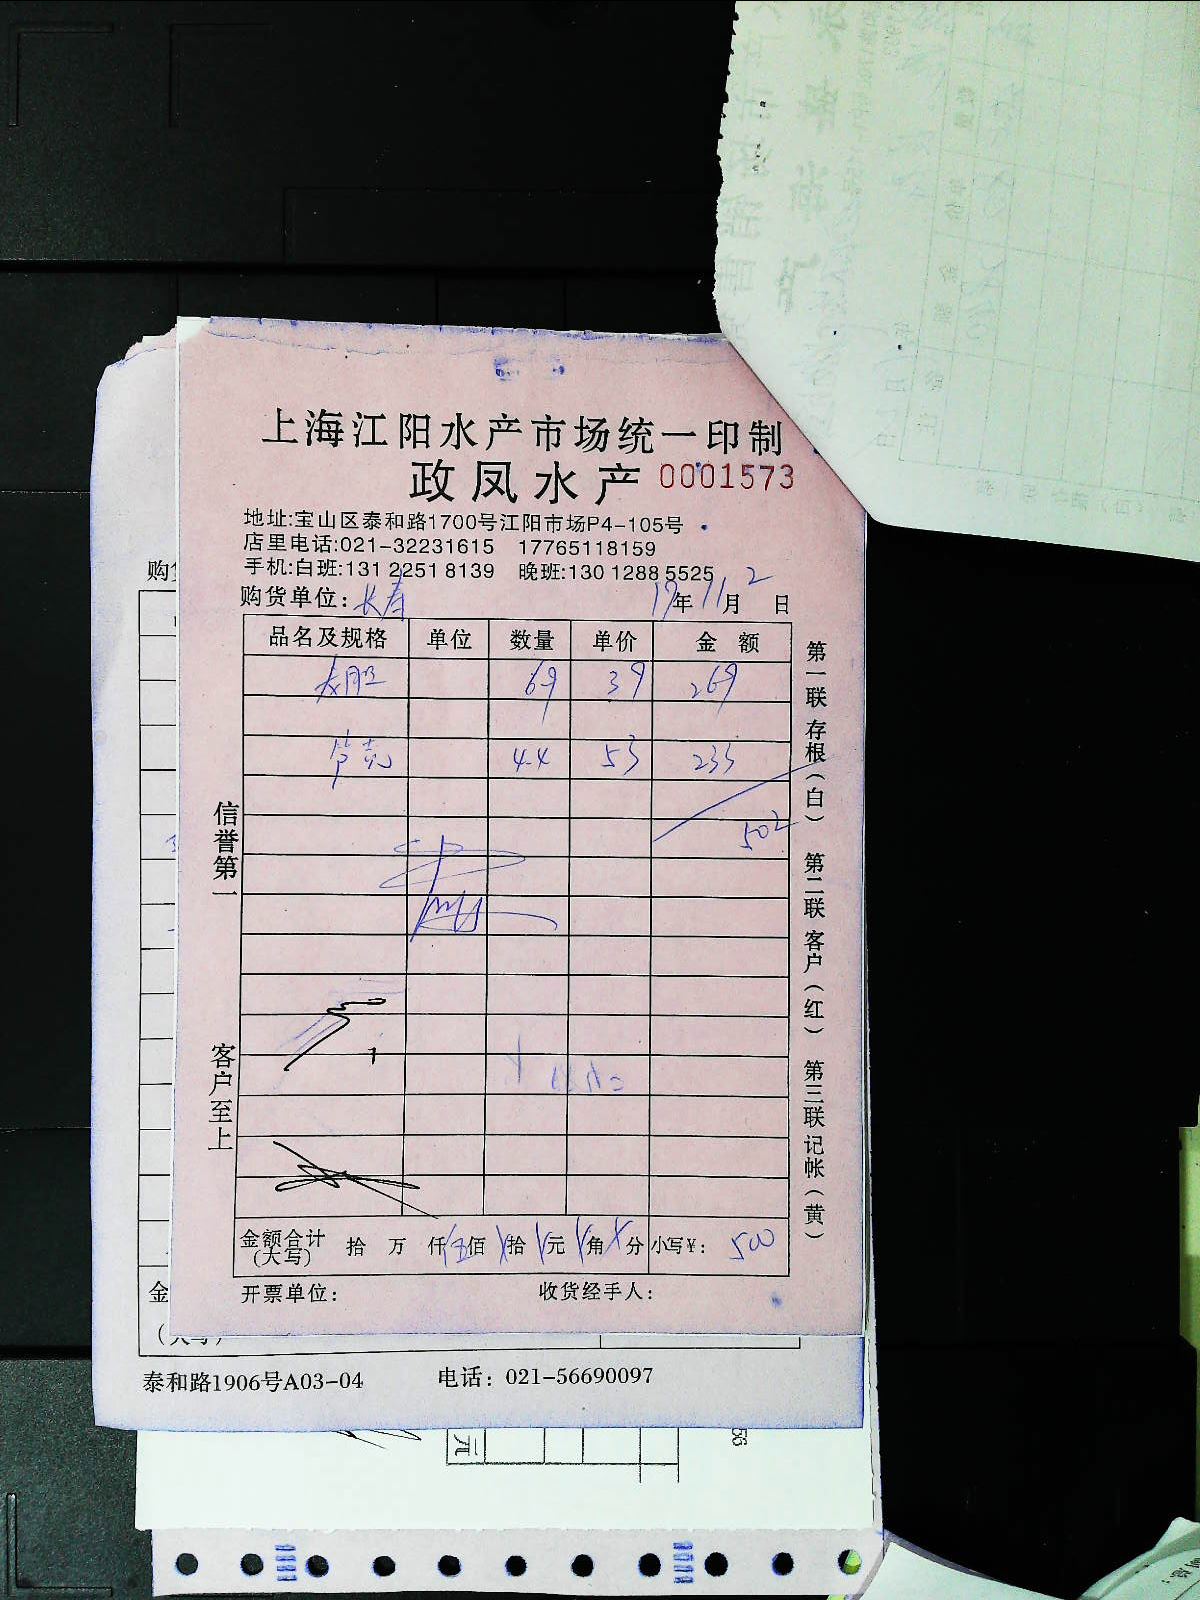 上海江阳水产市场统一印制
政凤水产 0001573
地址:宝山区泰和路1700号江阳市场P4-105号
店里电话:021-32231615 17765118159
手机:白班:131 2251 8139 晚班:130 1288 5525
购货单位: 长寿 17年11月2日
品名及规格 单位 数量 单价 金 额
69 39 269
4.4 53 233
502
信誉第一
客户至上
第一联 存根(白) 第二联 客户(红) 第三联 记帐(黄)
金额合计(大写) 拾 万 仟 伍佰 拾 元 角 分 小写¥: 500
开票单位: 收货经手人:
购
金
泰和路1906号A03-04 电话: 021-56690097
元
56